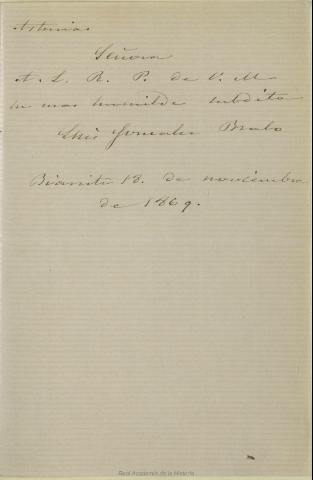 Asturias.
Señora
A. L. R. P. de V. M
su mas humilde subdito
Luis Gonzalez Brabo
Biarritz 18. de noviembre
de 1869.
Real Academia de la Historia